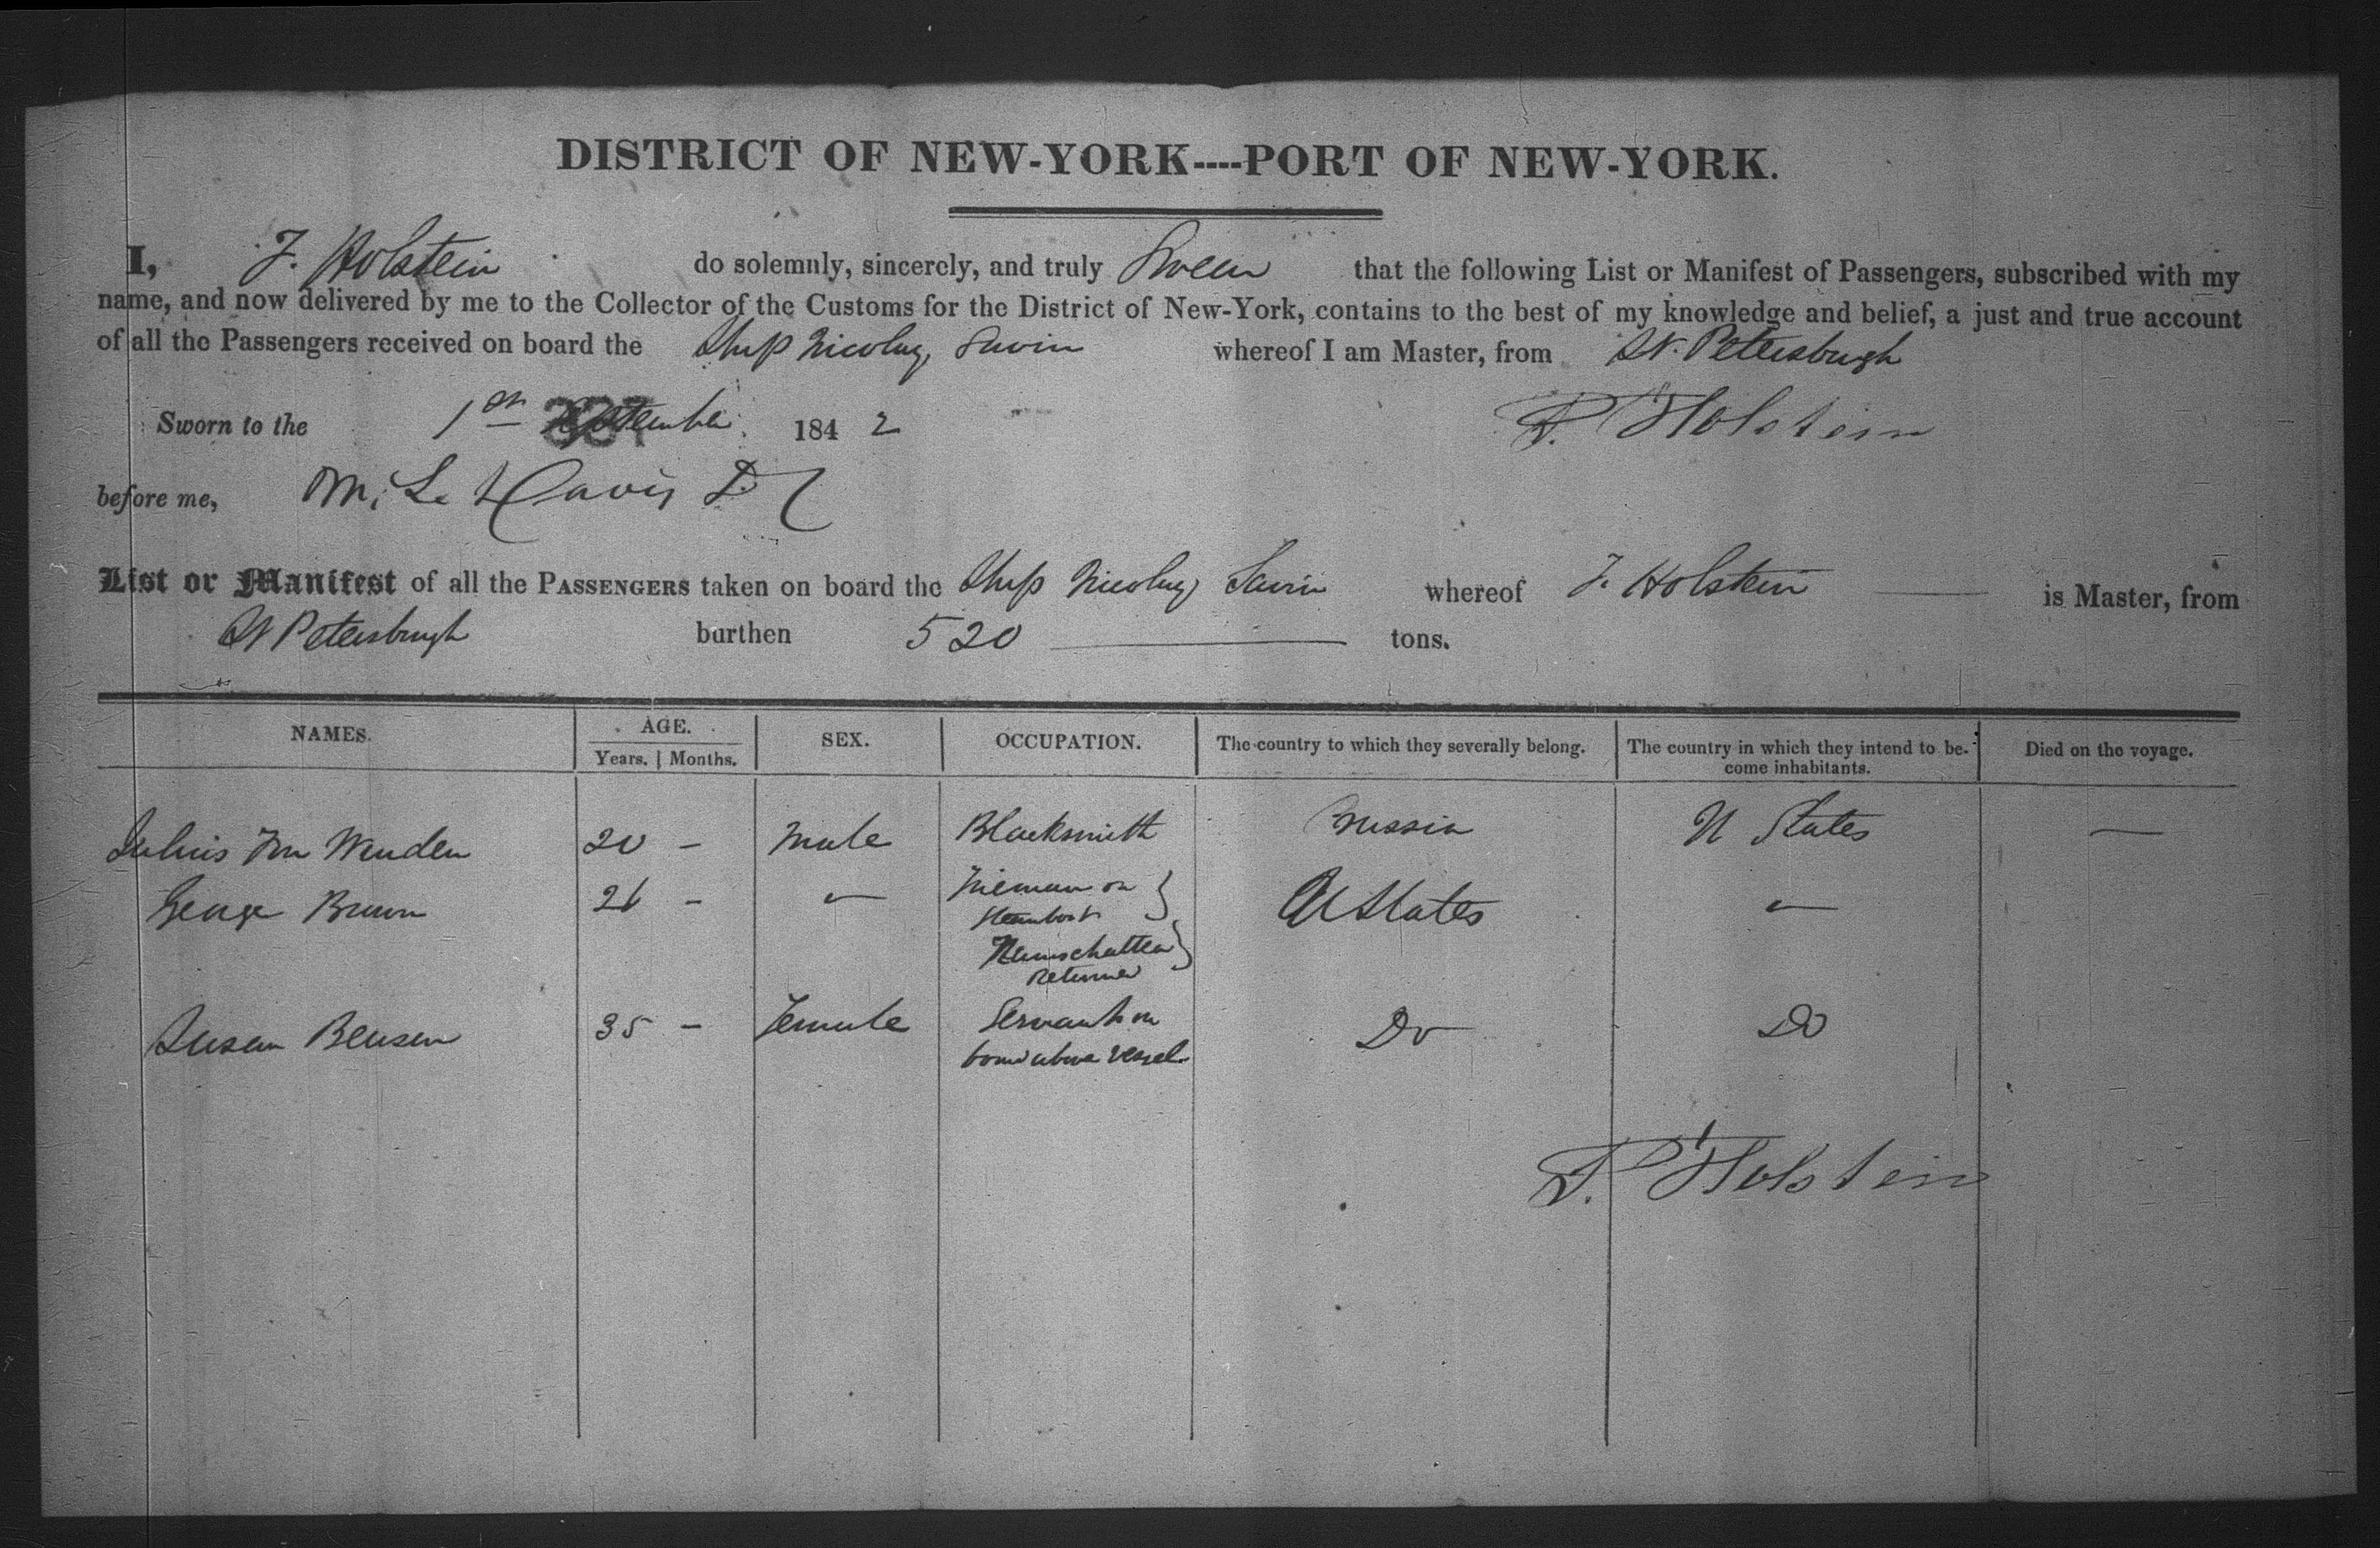 DISTRICT OF NEW-YORK----PORT OF NEW-YORK.
I, F. Holstein do solemnly, sincerely, and truly Swear that the following List or Manifest of Passengers, subscribed with my
name, and now delivered by me to the Collector of the Customs for the District of New-York, contains to the best of my knowledge and belief, a just and true account
of all the Passengers received on board the Ship Nicolay, Savin whereof I am Master, from St. Petersburgh
Sworn to the 1st September 1842 F. Holstein
before me, M. L. Davis
List or Manifest of all the PASSENGERS taken on board the Ship Nicolay Savin whereof F. Holstein is Master, from
St Petersburgh burthen 520 tons.
NAMES. AGE. SEX. OCCUPATION. The country to which they severally belong. The country in which they intend to be- Died on the voyage.
Years. Months. come inhabitants.
Julius Von Wenden 20 - Male Blacksmith Russia U States —
George Brown 26 - — Fireman on U States —
Steamboat
Kamschatka
Returned
Susan Bensen 35 - Female Servant on Do Do
board above vessel
F. Holstein